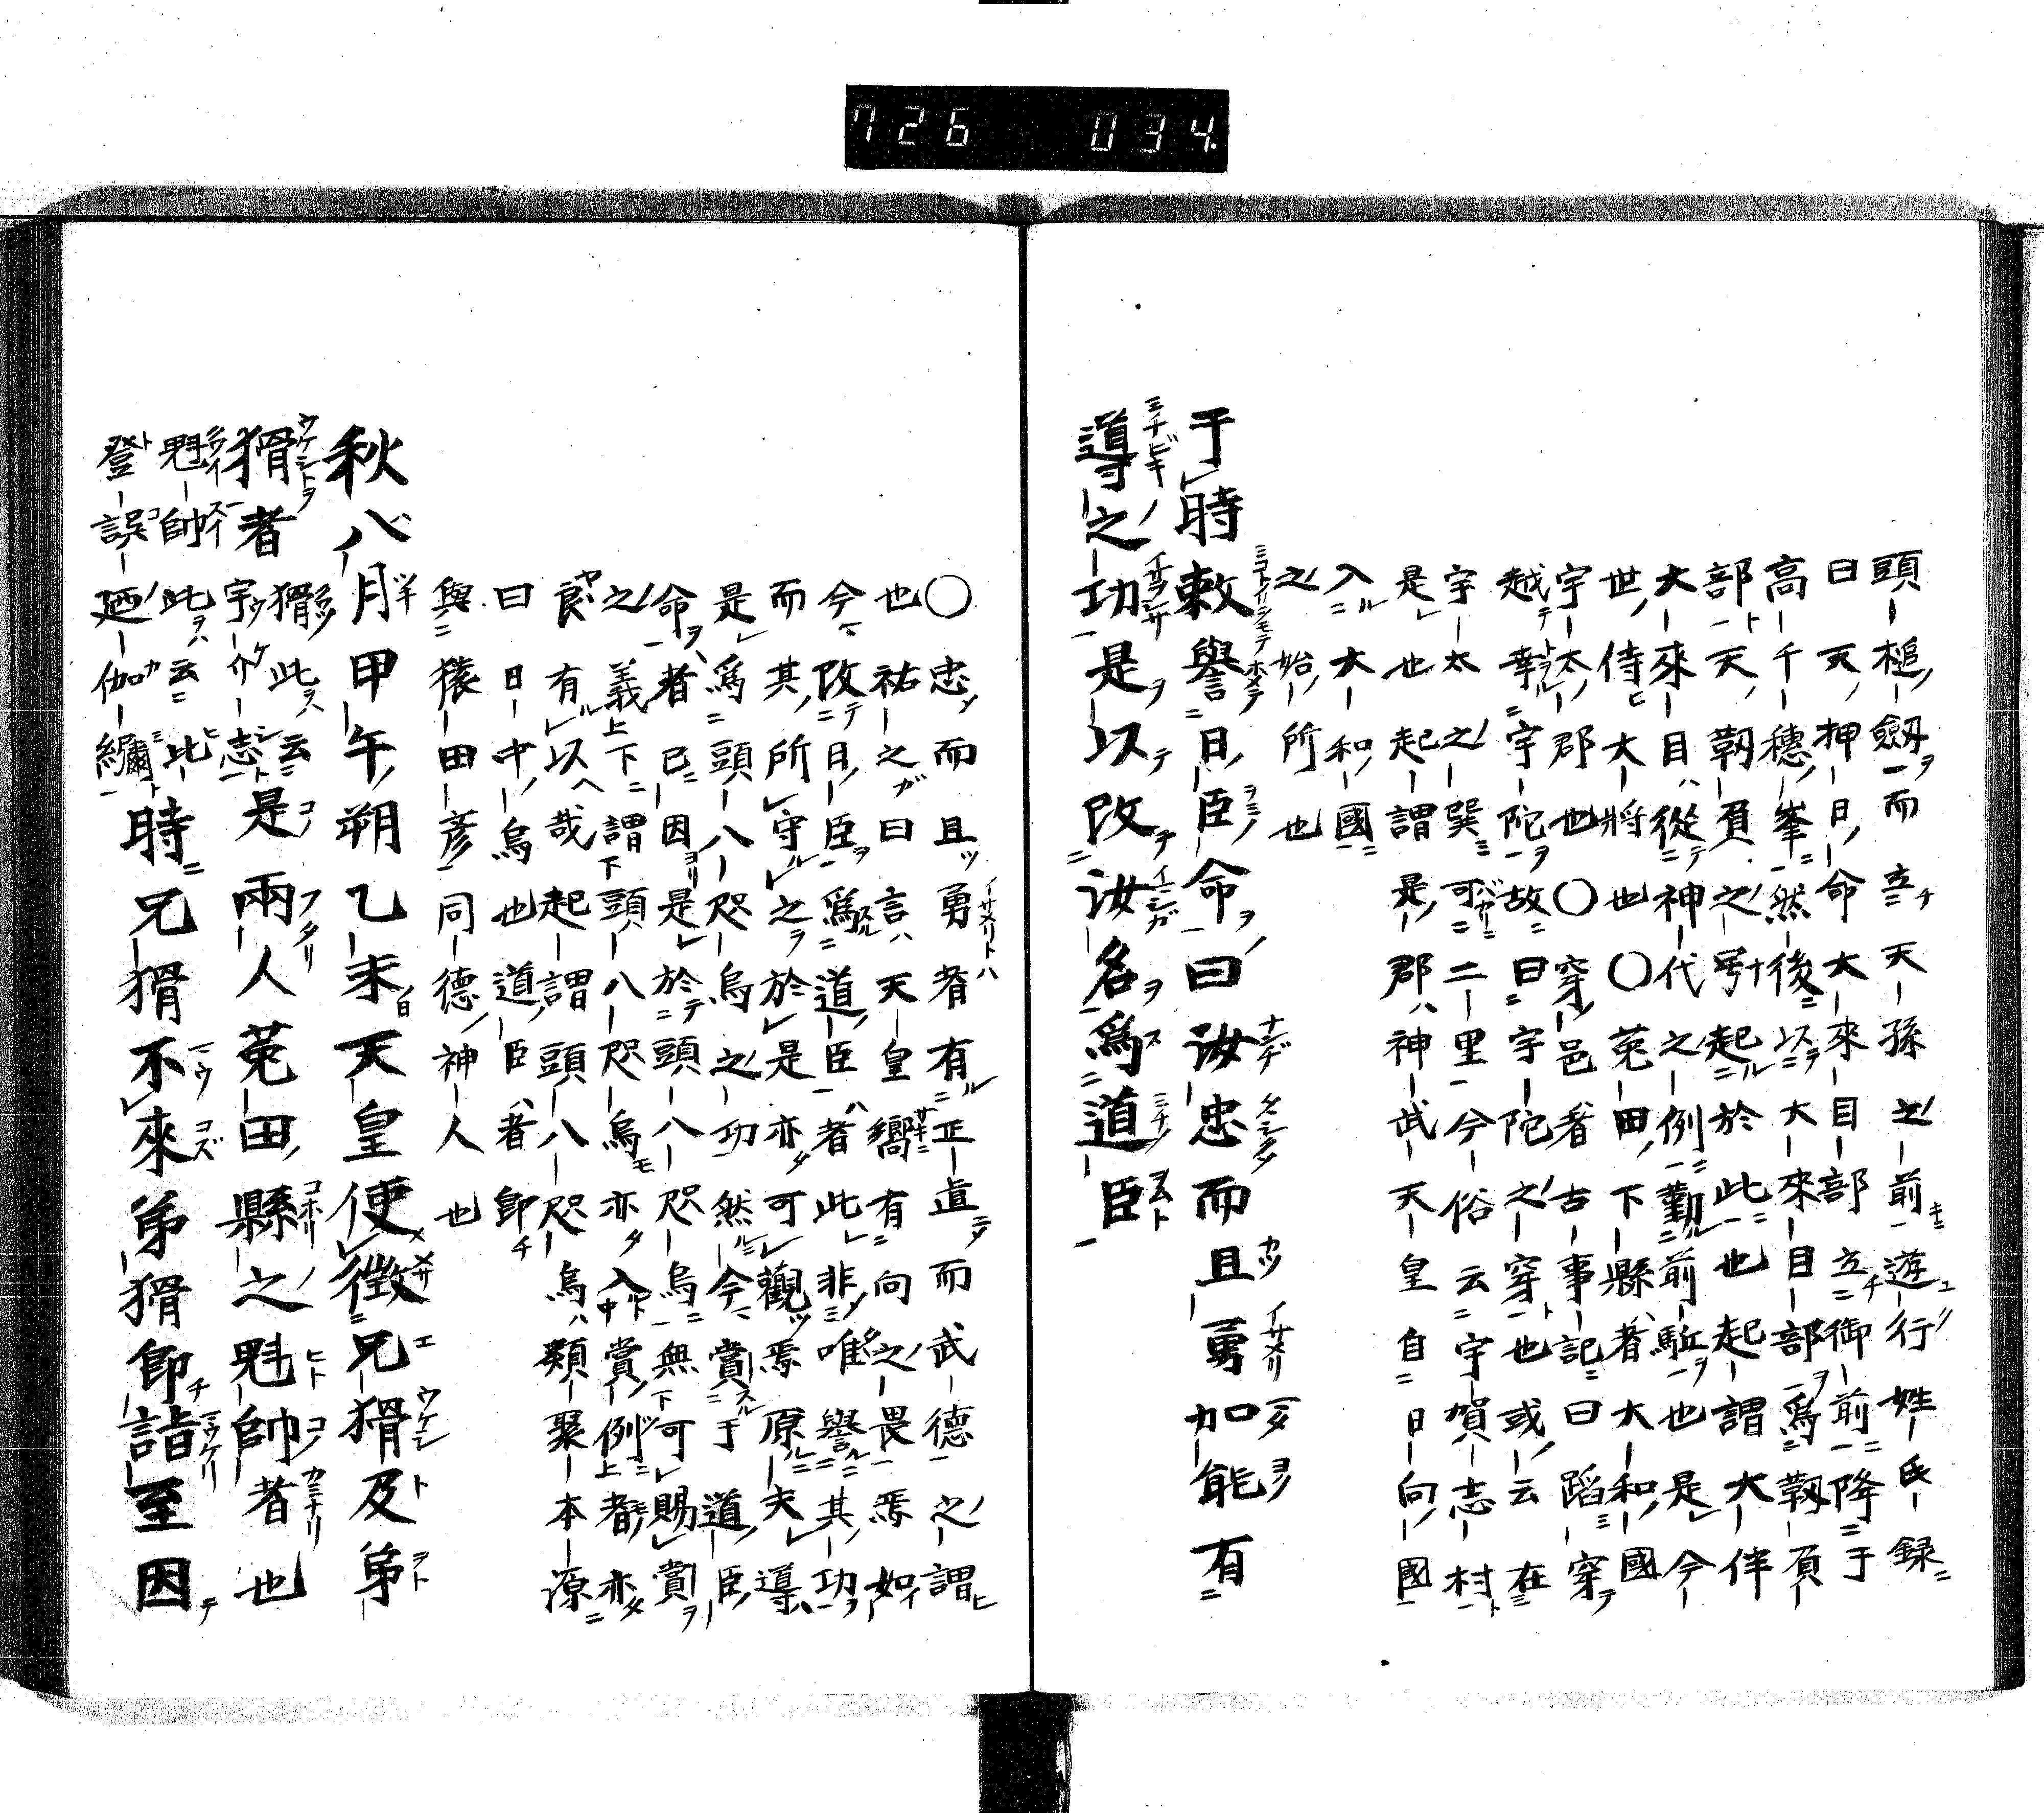 726 034
頭槌劔而立天孫之前遊行姓氏録
曰天押日命大來目部立御前降于
高千穗峯然後以大來目部爲靱負
部天靱負之号起於此也起謂大伴
大來目從神代之例勤前駈也是今
世侍大將也〇菟田下縣者大和國
宇太郡也〇穿邑者古事記曰蹈穿
越幸宇陀故曰宇陀之穿也或云在
宇太之巽可二里今俗云宇賀志村
是也起謂是郡神武天皇自日向國
入大和國
之始所也
于時敕譽日臣命曰汝忠而且勇加能有
導之功是以改汝名爲道臣
〇忠而且勇者有正直而武德之謂
也祐之曰言天皇嚮有向之畏焉如
今改日臣爲道臣者此非唯譽其功
而其所守之於是亦可觀焉原夫導
是爲頭八咫烏之功然今賞于道臣
命者已因是於頭八咫烏無可賜賞
之義下謂頭八咫烏亦入賞例者亦
良有以哉起謂頭八咫烏類聚本源
曰日中烏也道臣者即
與猿田彦同德神人也
秋八月甲午朔乙未天皇使徵兄猾及弟
猾者猾此云宇介志是兩人菟田縣之魁帥者也
魁帥此云比
登誤廼伽瀰時兄猾不來弟猾即詣至因